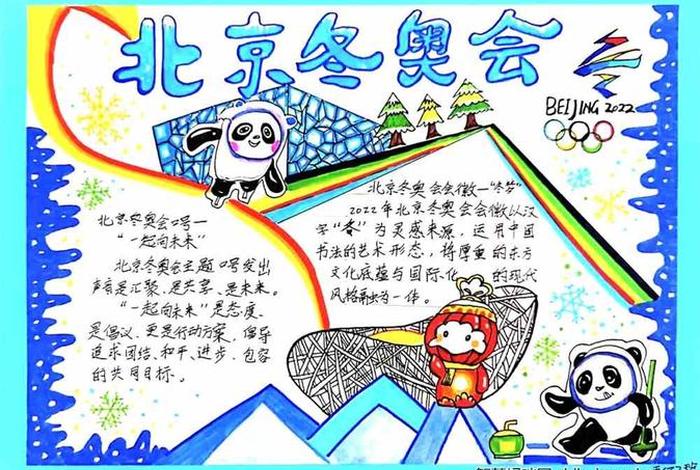 北京冬奥会
BEIJING 2022
北京冬奥会口号一
“一起向未来”
北京冬奥会主题口号发出
声音是汇聚、是共享、是未来。
“一起向未来”是态度、
是倡议、更是行动方案，倡导
追求团结、和平、进步、包容
的共同目标。
北京冬奥会会徽一“冬梦”
2022年北京冬奥会会徽以汉
字“”为灵感来源，运用中国
书法的艺术形态，将厚重的东方
文化底蕴与国际化 的现代
风格融为一体。